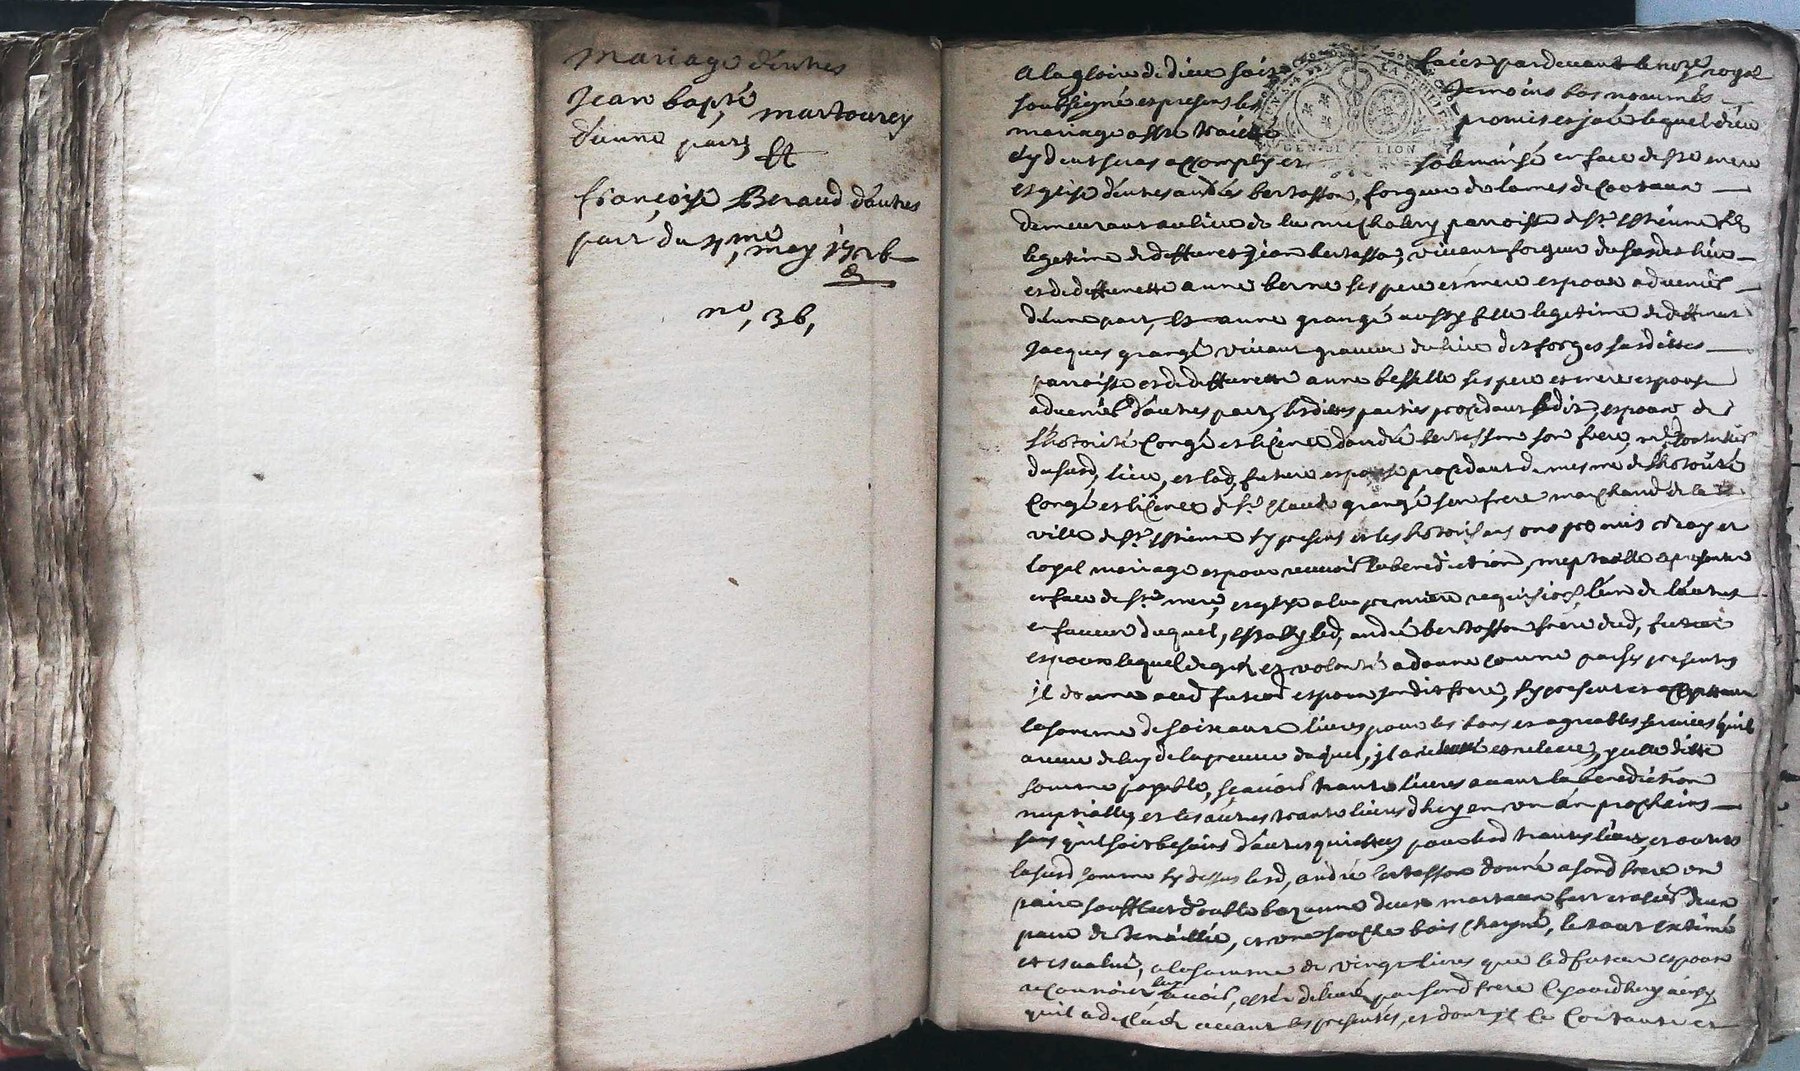 Mariage d'entres
Jean bapte martourey
d'unne part Et
françoise Beraud d'autres
part du may
no, 36,
A la gloire de dieu soit faict pardevant le nore royal
soubsigné et presens les temoins bas nommés
mariage a esté traicté promis et juré lequel dieu
aydant seras accomply et solemnisé en face de ste mere
esglise d'entres andré bertasson, forgeur de lames de couteaux
demeurant au lieu de paroisse de st estienne fils
legetime de deffunct jean bertasson vivant forgeur dususdit lieu
et de deffunctte anne berne ses pere et mere espoux advenir
d'unne part, Et anne grangé aussy fille legetime de deffunct
Jacques grangé vivant graveur du lieu des forges susdittes
parroisse et de deffunctte anne besselle ses pere et mere espouse
advenir d'autres part, lesdittes parties procedant ledit espoux de
l'hotorité Congé et licence d'andré bertasson son frere, me coutellier
dususd, lieu, et lad, future espouse procedant de mesme de l'hotorité
Congé et licence de sr Claude grangé son frere marchand de la
ville de st estienne sy presens et les hotorisans ont promis vray et
loyal mariage et pour recevoir la benediction, nuptialle se presenter
en face de ste mere, esglise a la premiere requisition l'un de l'autres
en faveur duquel, estably led, andré bertasson frere dud, futur
espoux lequel de gré et volonté a donné comme par ses presentes
il donne aud futur espoux sondit frere, sy present et acceptant
la somme de soixante livres pour les bons et agreables services qu'il
a receu de luy de la preuve duquel, il a relevé et releve, payable ditte
somme payable, sçavoir trante livres avant la benediction
nuptialle et les autres trante livres d'huy en un an prochains
sans qu'il soit besoins d'autres quittes pour lesd trantes livres, et outre
la susd somme sy dessus led, andré bertasson donne a sond frere une
paire soufflet double bazanne deux marteaux fert et assier deux
paire de tenaillie, et une souche bois chayné, le tout extimé
et evalué, a la somme de vingt livres que led futur espoux
a reconnoit luy avoir, esté delivré par sond frere ce jourdhuy ainsy
qu'il a declaré avant les presentes, et dont il se contante et